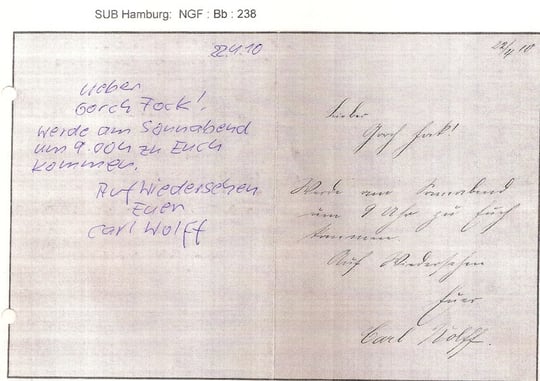 SUB Hamburg: NGF : Bb : 238
22.4.10
Lieber
Gorch Fock!
Werde am Sonnabend
um 9.00h zu Euch
kommen.
Auf Wiedersehen
Euer
Carl Wolff
22/4 10
Lieber
Gorch Fock!
Werde am Sonnabend
um 9 Uhr zu Euch
kommen.
Auf Wiedersehen
Euer
Carl Wolff.